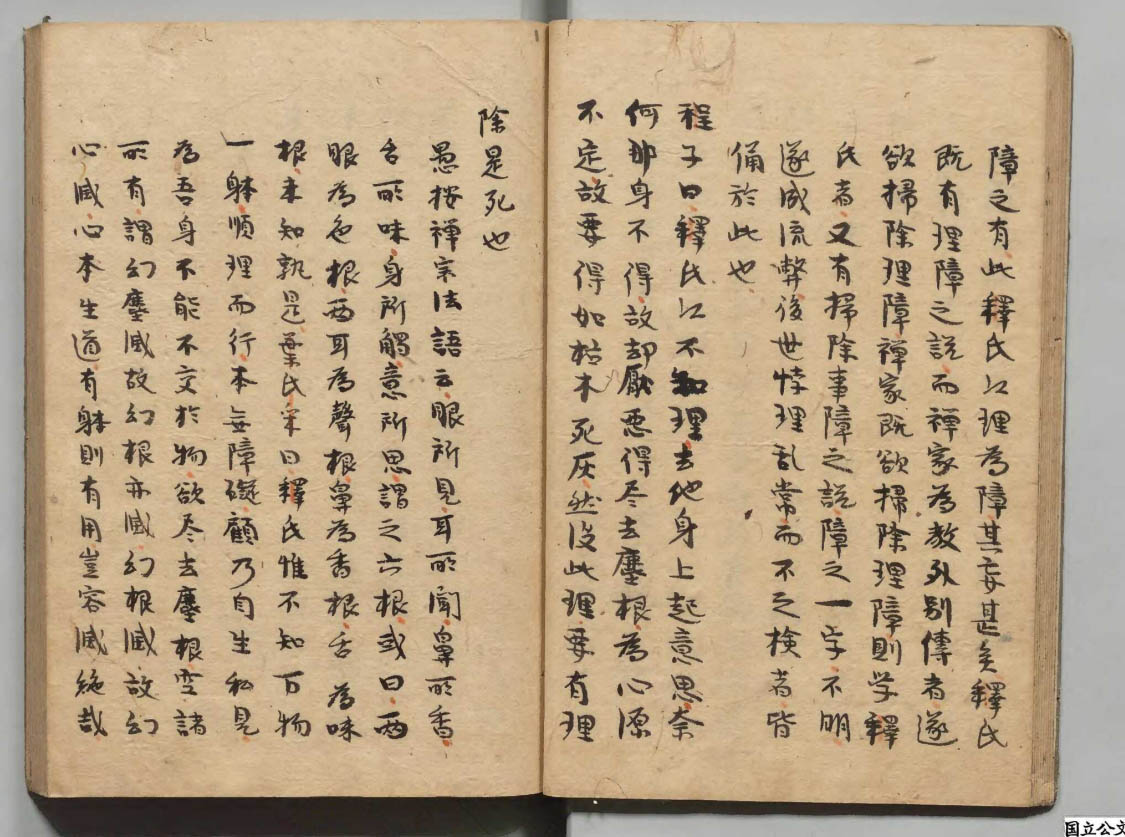 障之有此釋氏以理為障其妄甚矣釋氏
既有理障之説而禪家為教外別傳者遂
欲掃除理障禪家既欲掃除理障則学釋
氏者又有掃除事障之説障之一字不明
遂成流弊後世悖理乱常而不之検者皆
俑於此也
程子曰釋氏以不知理去他身上起意思奈
何那身不得故却厭惡得尽去塵根為心源
不定故要得如枯木死灰然没此理要有理
除是死也
愚按禅宗法語云眼所見耳所聞鼻所香
舌所味身所觸意所思謂之六根或曰两
眼為色根两耳為聲根鼻為香根舌為味
根未知孰是葉氏采曰釋氏惟不知百物
一躰順理而行本無障礙顧乃自生私見
為吾身不能不交於物欲尽去塵根空諸
所有謂幻塵滅故幻根亦滅幻根滅故幻
心滅心本生道有躰則有用豈容滅絶哉
国立公文